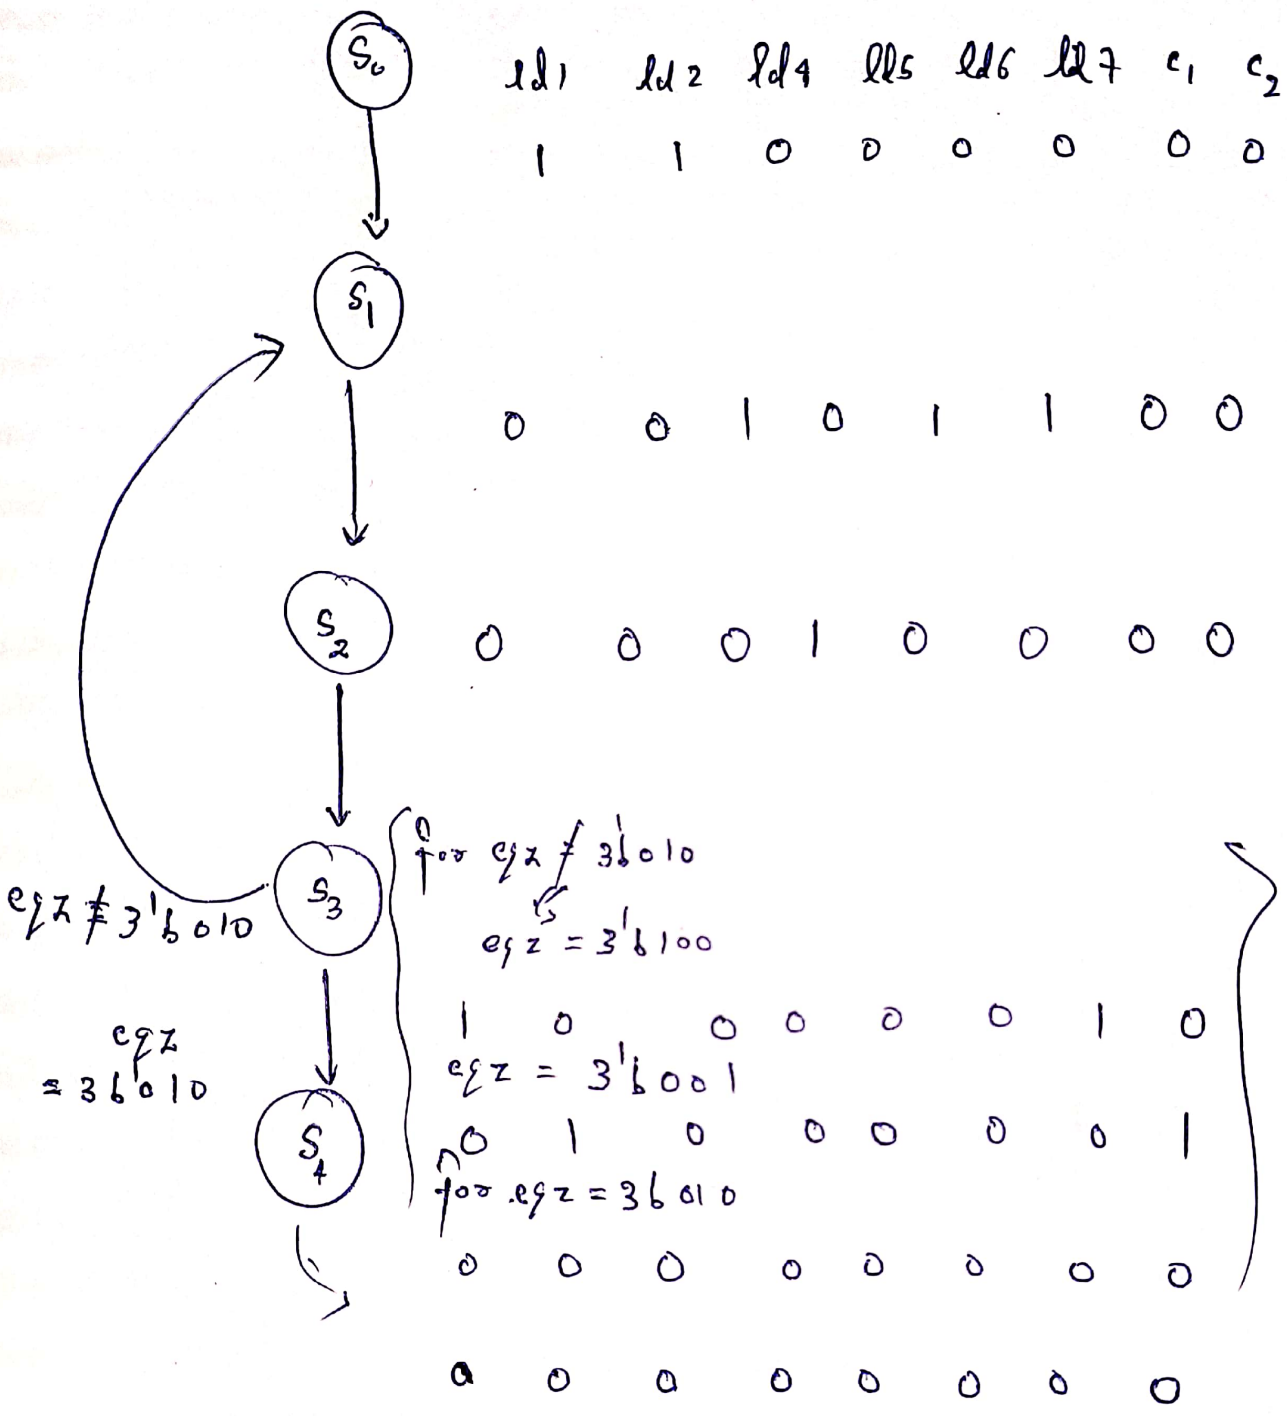 S0
ld1 ld2 ld4 ld5 ld6 ld7 c1 c2
1 1 0 0 0 0 0 0
S1
0 0 1 0 1 1 0 0
S2
0 0 0 1 0 0 0 0
S3
for eqz ≠ 3'b010
eqz ≠ 3'b010
eqz = 3'b100
1 0 0 0 0 0 1 0
eqz
= 3b'010
eqz = 3'b001
S4
0 1 0 0 0 0 0 1
for eqz = 3b010
0 0 0 0 0 0 0 0
0 0 0 0 0 0 0 0